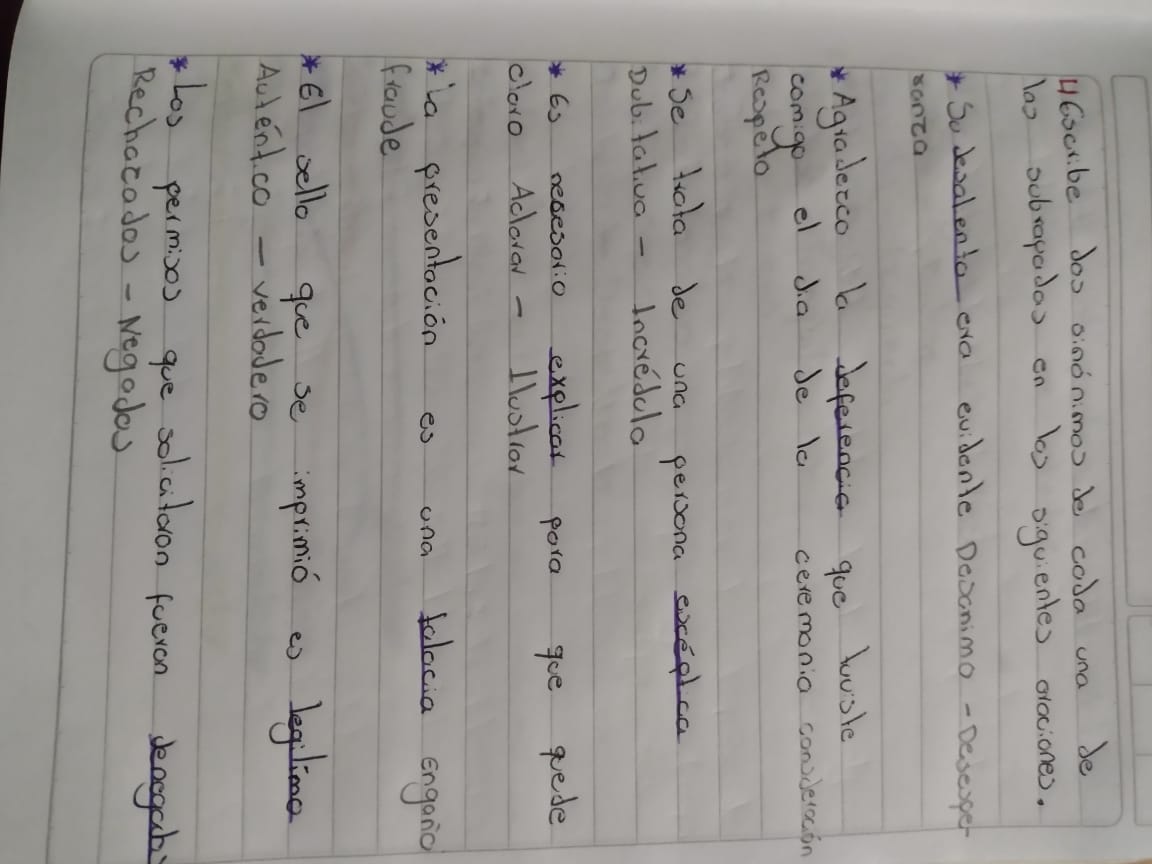 4 Escribe dos sinónimos de cada una de
las subrayadas en las siguientes oraciones.
* Su desalento era evidente Desanimo - Desespe-
ranza
* Agradezco la deferencia que tuviste
comigo el dia de la ceremonia consideración
Respeto
* Se trata de una persona excéptica
Dubitativa - Incrédula
* Es nesesario explicar para que quede
claro Aclarar - Ilustrar
* La presentación es una falacia engaño
fraude
* El sello que se imprimió es legítimo
Auténtico - verdadero
* Los permisos que solicitaron fueron denegados
Rechazados - Negados